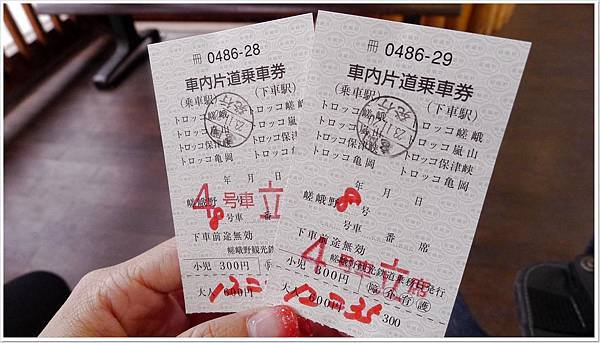 冊 0486-28
車内片道乗車券
(乗車駅) (下車駅)
トロッコ嵯峨 トロッコ嵯
トロッコ嵐山 トロッコ嵐
トロッコ保津峡 トロッコ保
トロッコ亀岡 トロッコ亀
年 月 日
嵯峨野 8 号
4 号車 立
号車 番
下車前途無効
嵯峨野観光鉄
小児 300円
大人 600円
冊 0486-29
車内片道乗車券
(乗車駅) (下車駅)
トロッコ嵯峨 トロッコ嵯峨
トロッコ嵐山 トロッコ嵐山
トロッコ保津峡 トロッコ保津峡
トロッコ亀岡 トロッコ亀岡
年 月 日
嵯峨野 8 号
号車 番 席
下車前途無効
4 号車 立席
嵯峨野観光鉄道乗務員発行
小児 300円 障 介 育 護
大人 600円 300